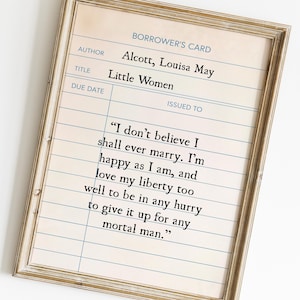 BORROWER'S CARD
AUTHOR Alcott, Louisa May
TITLE Little Women
DUE DATE ISSUED TO
“I don’t believe I
shall ever marry. I’m
happy as I am, and
love my liberty too
well to be in any hurry
to give it up for any
mortal man.”